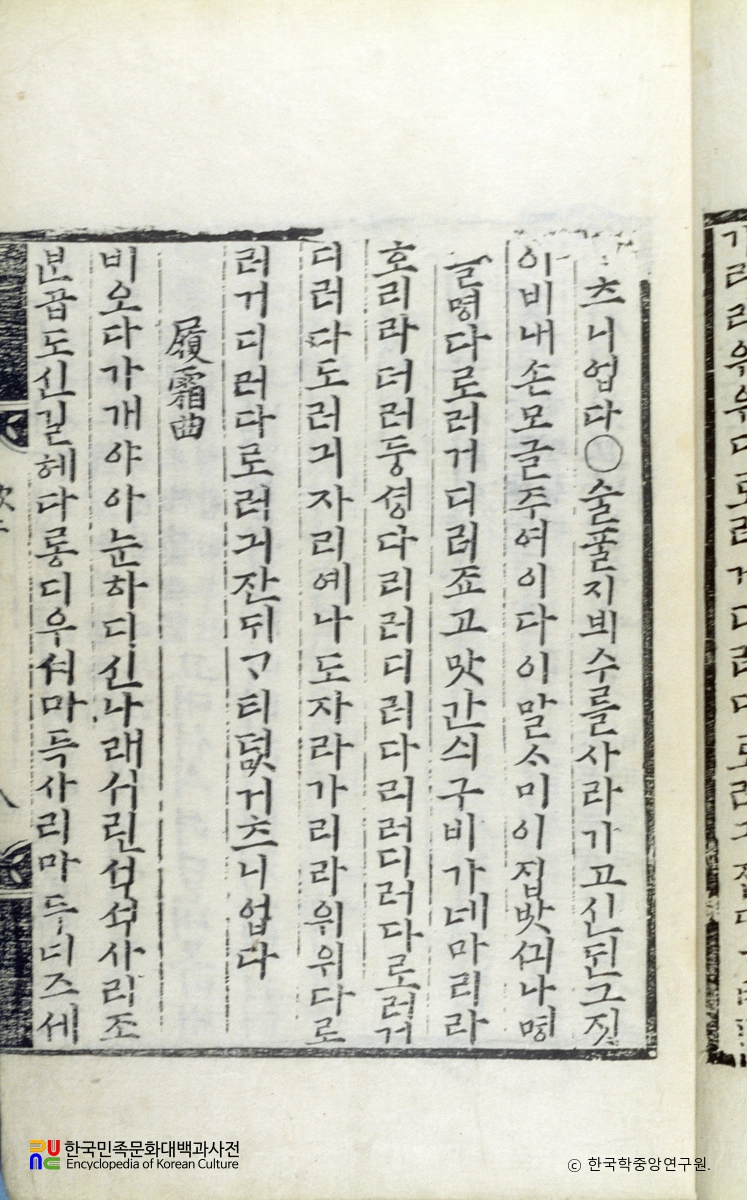 츠니업다〇술ᄑᆞᆯ지븨수를사라가고신ᄃᆡᆫ그짓
이비내손모글주여이다이말ᄉᆞ미이집밧ᄭᅴ나명
들명다로러거디러죠고맛간싀구비가네마리라
호리라더러둥셩다리러디러다리러디러다로러거
디러다도러긔자리예나도자라가리라위위다로
러거디러다로러긔잔ᄃᆡᄀᆞ티덦거츠니업다
履霜曲
비오다가개야아눈하디신나래서린석석사리조
븐곱도신길헤다롱디우셔마득사리마두너즈세
한국민족문화대백과사전
Encyclopedia of Korean Culture
© 한국학중앙연구원.